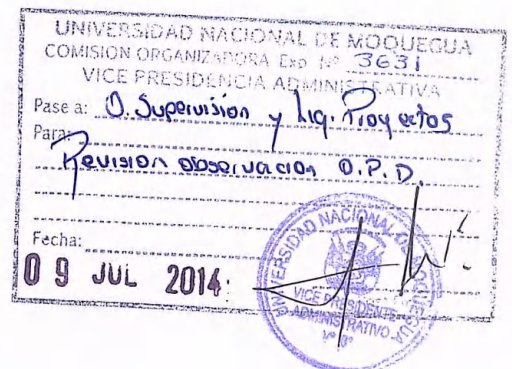 UNIVERSIDAD NACIONAL DE MOQUEGUA
COMISION ORGANIZADORA Exp. Nº 3631
VICE PRESIDENCIA ADMINISTRATIVA
Pase a: O. Supervisión y Liq. Proyectos
Para:
Revisión observación O.P.D.
Fecha:
09 JUL 2014
UNIVERSIDAD NACIONAL DE MOQUEGUA
VICE PRESIDENTE
ADMINISTRATIVO